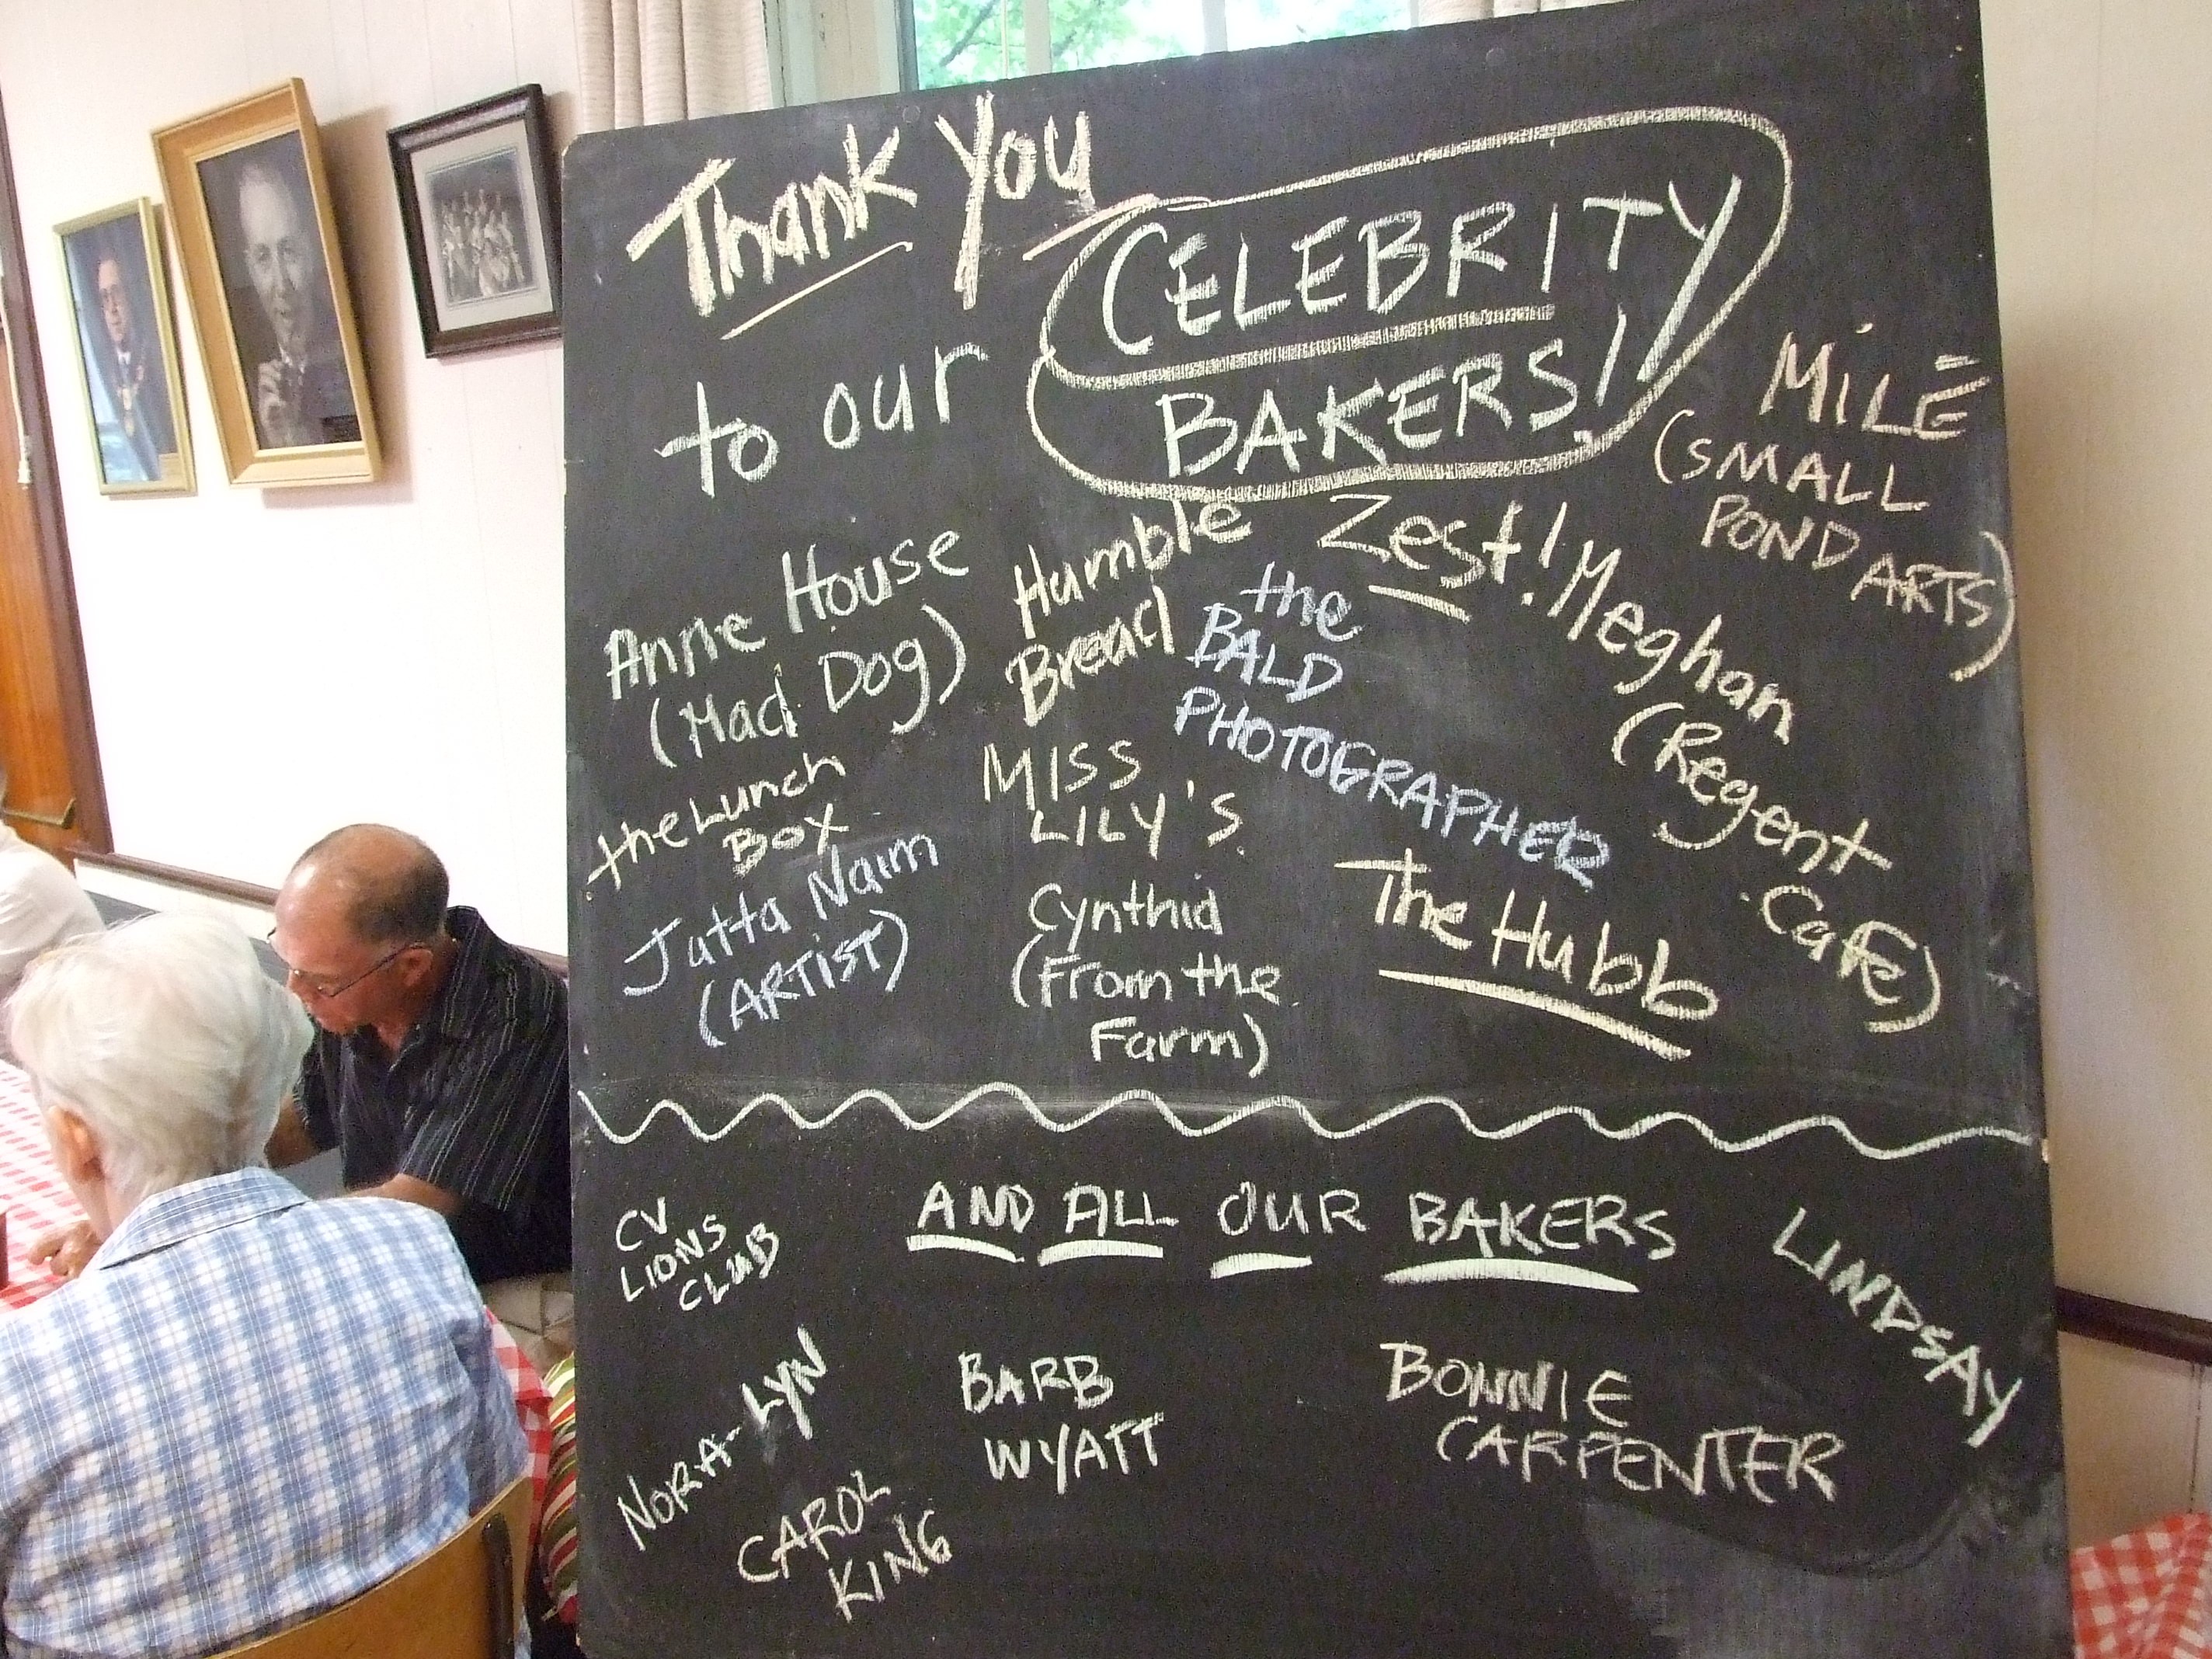 Thank You
to our
CELEBRITY
BAKERS!
MILE
(SMALL
POND ARTS)
Anne House
(Mad Dog)
Humble
Bread
Zest!
Meghan
(Regent
Cafe)
the
BALD
PHOTOGRAPHER
the Lunch
BOX
MISS
LILY'S
Jatta Naim
(ARTIST)
Cynthia
(From the
Farm)
The Hubb
AND ALL OUR BAKERS
CV
LIONS
CLUB
LINDSAY
NORA-LYN
BARB
WYATT
BONNIE
CARPENTER
CAROL
KING